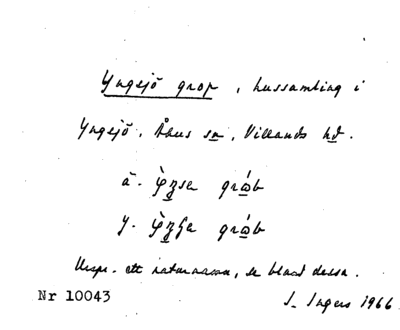 Yngsjö grop, hussamling i
Yngsjö, Åhus sn, Villands hd.
ä.
y.
Urspr. ett naturnamn, se bland dessa.
Nr 10043 I. Ingers 1966